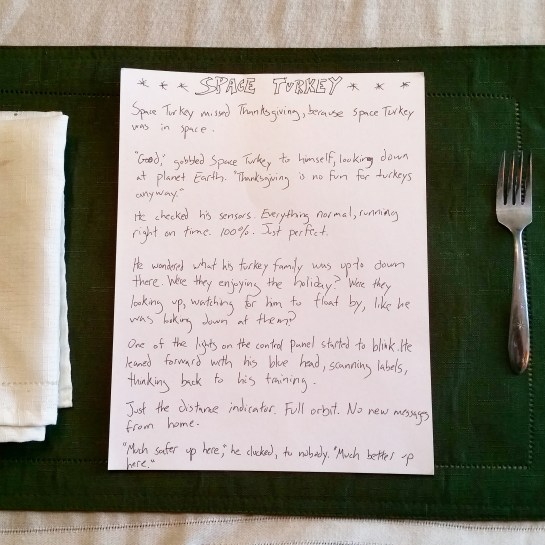 * * * SPACE TURKEY * * *
Space Turkey missed Thanksgiving, because space Turkey
was in space.
"Good," gobbled Space Turkey to himself, looking down
at planet Earth. "Thanksgiving is no fun for turkeys
anyway."
He checked his sensors. Everything normal, running
right on time. 100%. Just perfect.
He wondered what his turkey family was up to down
there. Were they enjoying the holiday? Were they
looking up, watching for him to float by, like he
was looking down at them?
One of the lights on the control panel started to blink. He
leaned forward with his blue head, scanning labels,
thinking back to his training.
Just the distance indicator. Full orbit. No new messages
from home.
"Much safer up here," he clucked, to nobody. "Much better up
here."